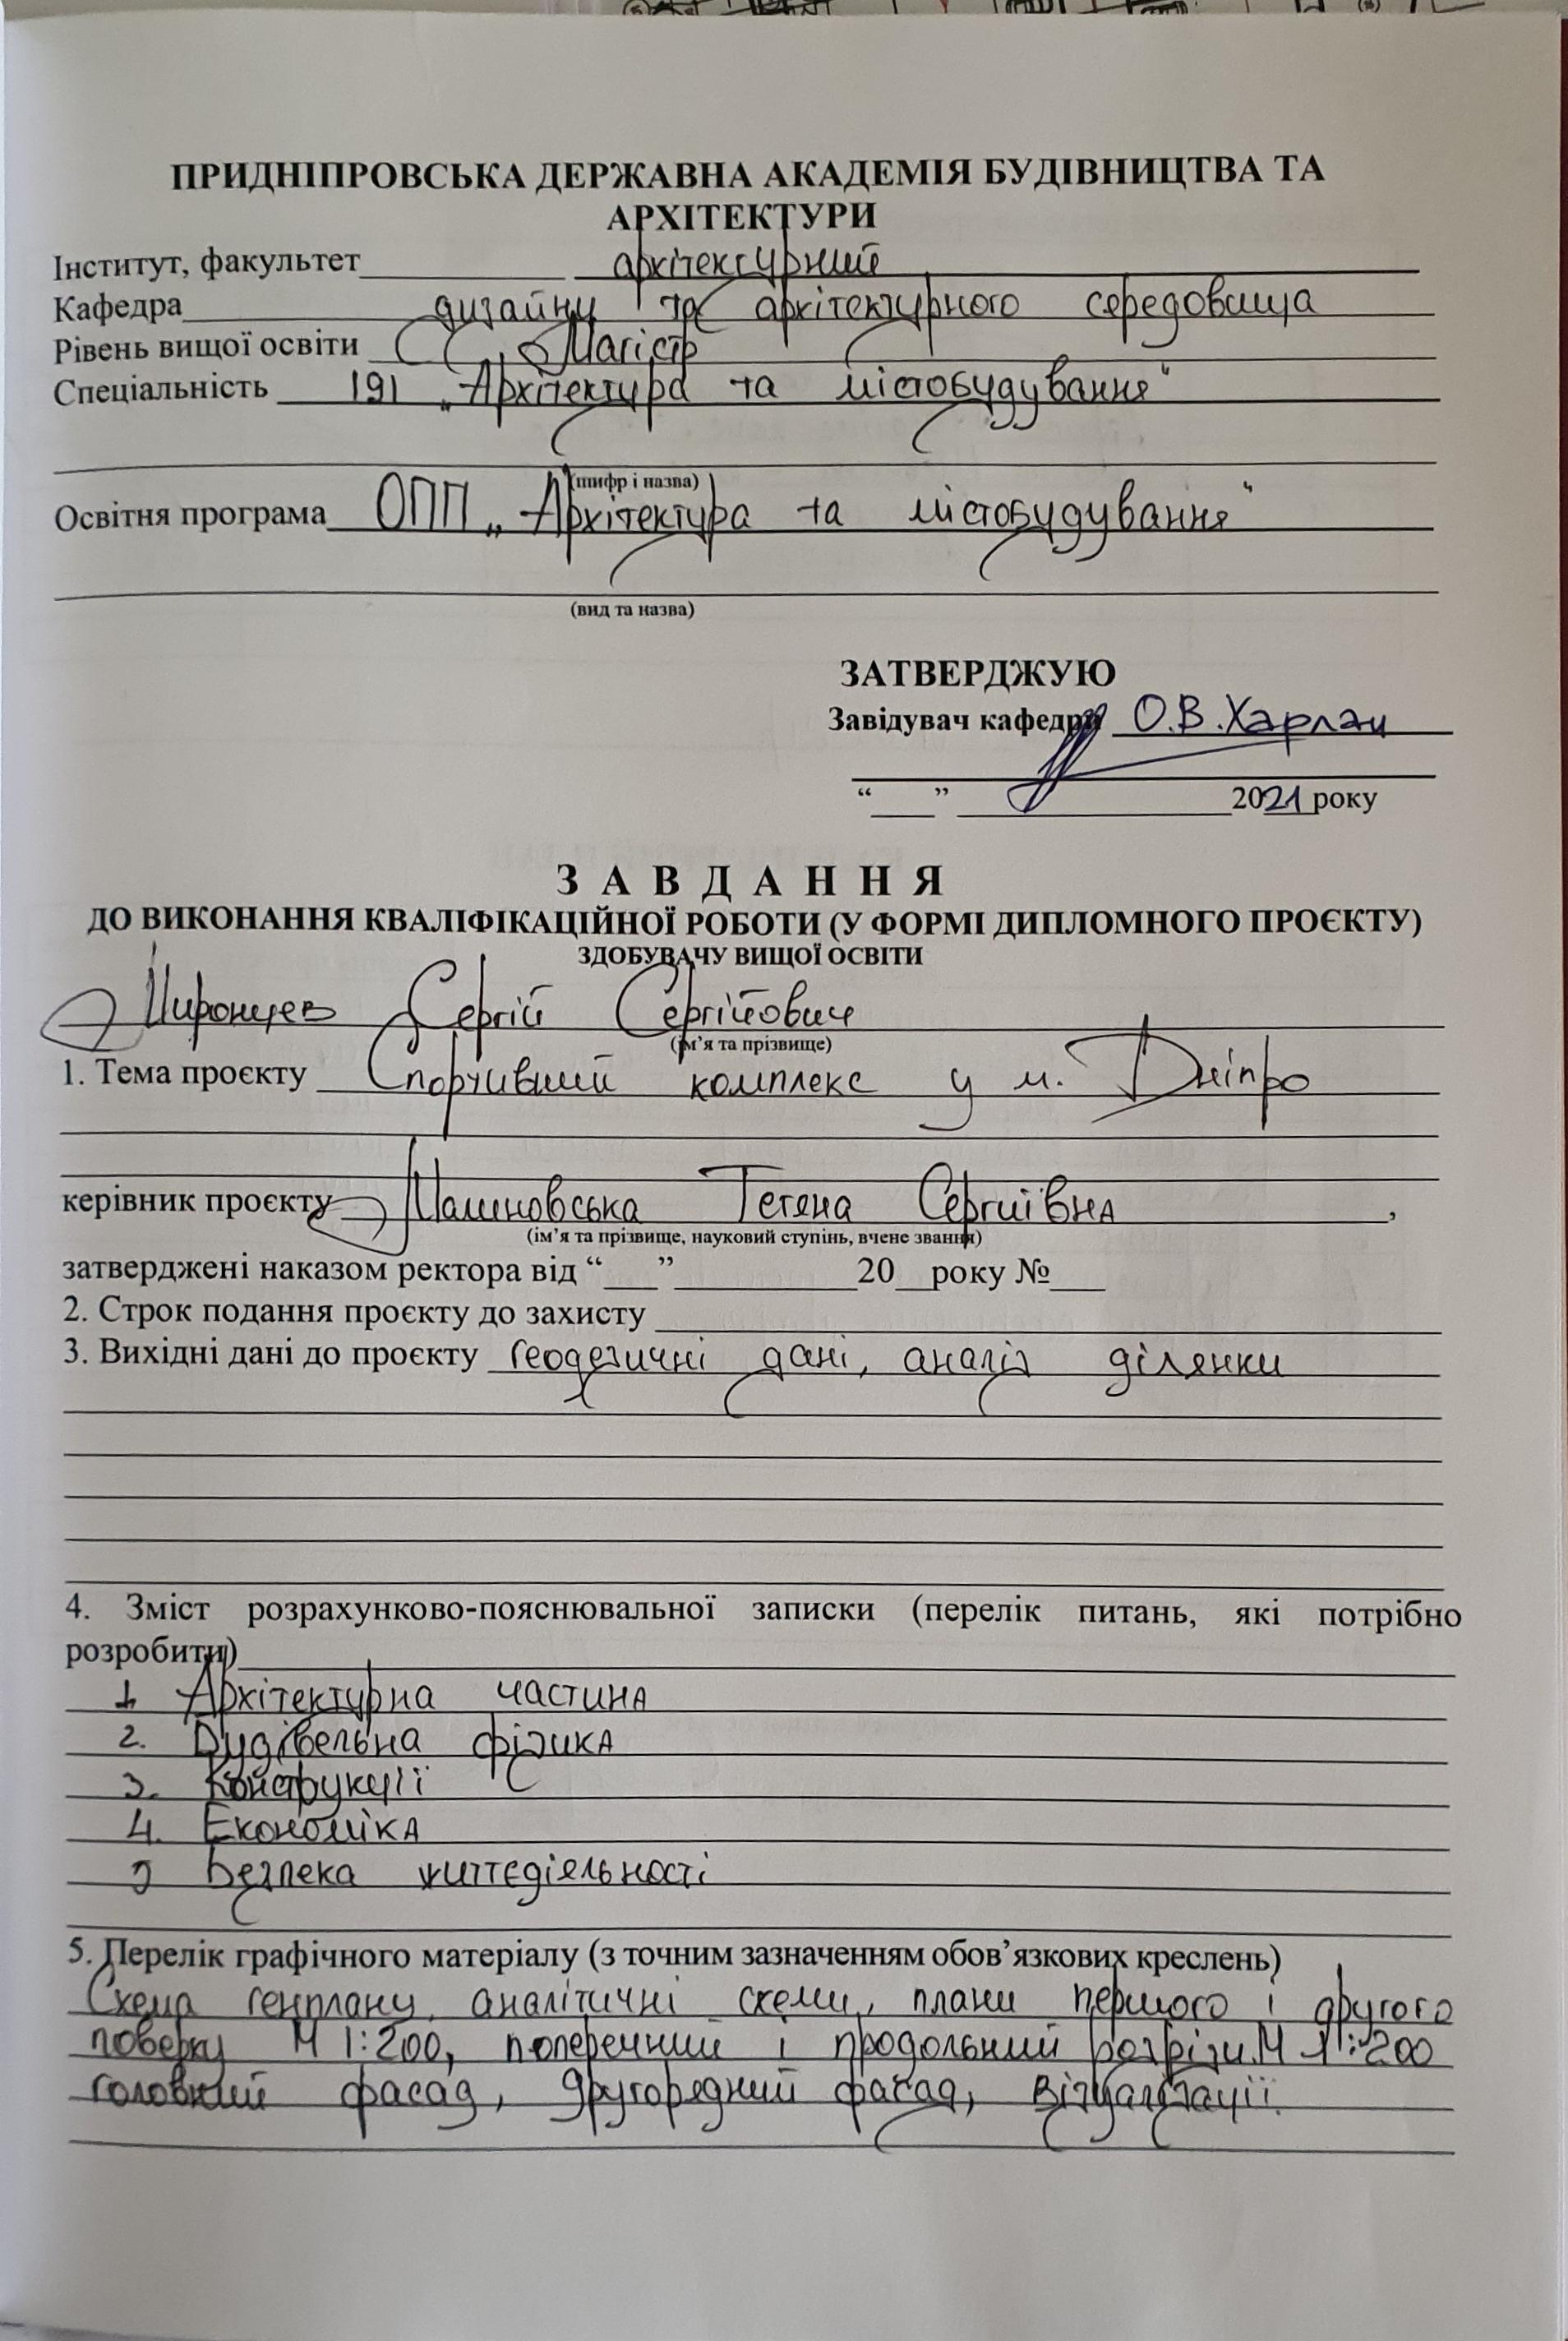 ПРИДНІПРОВСЬКА ДЕРЖАВНА АКАДЕМІЯ БУДІВНИЦТВА ТА
АРХІТЕКТУРИ
Інститут, факультет архітектурний
Кафедра дизайну та архітектурного середовища
Рівень вищої освіти Магістр
Спеціальність 191 „Архітектура та містобудування"
(шифр і назва)
Освітня програма ОПП „Архітектура та містобудування"
(вид та назва)
ЗАТВЕРДЖУЮ
Завідувач кафедри О.В.Харлан
“___” ____________ 2021 року
З А В Д А Н Н Я
ДО ВИКОНАННЯ КВАЛІФІКАЦІЙНОЇ РОБОТИ (У ФОРМІ ДИПЛОМНОГО ПРОЄКТУ)
ЗДОБУВАЧУ ВИЩОЇ ОСВІТИ
Миронцев Сергій Сергійович
(ім’я та прізвище)
1. Тема проєкту Спортивний комплекс у м. Дніпро
керівник проєкту Малиновська Тетяна Сергиївна,
(ім’я та прізвище, науковий ступінь, вчене звання)
затверджені наказом ректора від “___”__________20__року №___
2. Строк подання проєкту до захисту
3. Вихідні дані до проєкту геодезичні дані, аналіз ділянки
4. Зміст розрахунково-пояснювальної записки (перелік питань, які потрібно
розробити)
1. Архітектурна частина
2. Будівельна фізика
3. Конструкції
4. Економіка
5 Безпека життєдіяльності
5. Перелік графічного матеріалу (з точним зазначенням обов’язкових креслень)
Схема генплану, аналітичні схеми, плани першого і другого
поверху М 1:200, поперечний і продольний розрізи М 1:200
головний фасад, другорядний фасад, візуалізації.